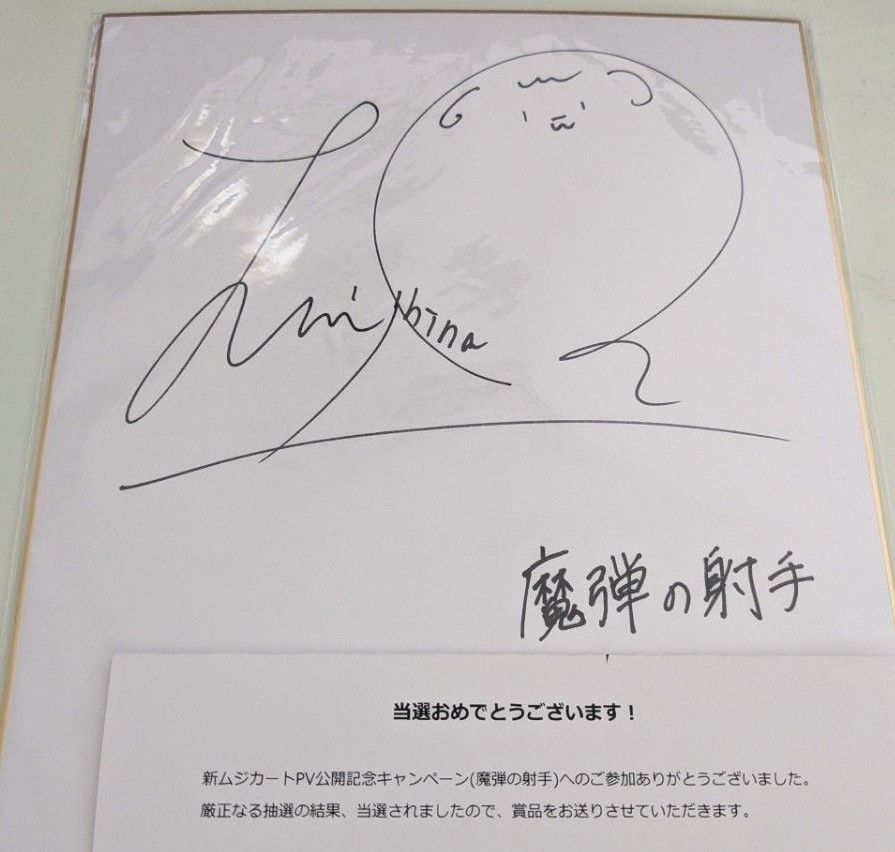 魔弾の射手
当選おめでとうございます！
新ムジカートPV公開記念キャンペーン(魔弾の射手)へのご参加ありがとうございました。
厳正なる抽選の結果、当選されましたので、賞品をお送りさせていただきます。